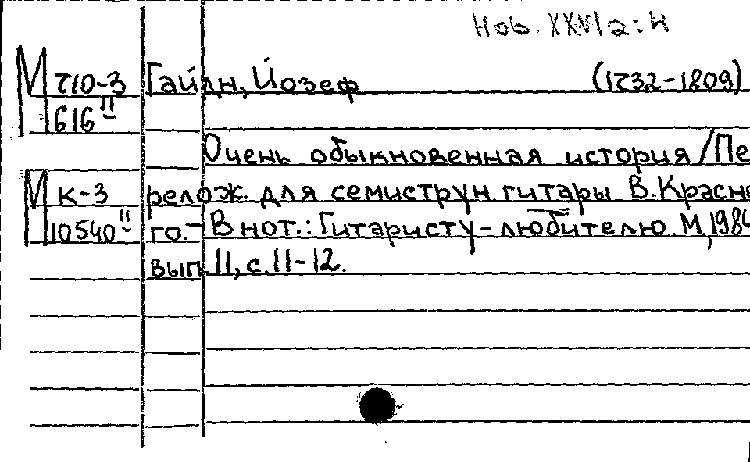 Hob. XXVIa:H
М 710-3 Гайдн, Йозеф (1732-1809)
616 II
Очень обыкновенная история/Пе
М К-3 релож. для семиструн. гитары В.Красно
10540 II го.- В нот.: Гитаристу-любителю. М, 1984
вып. 11, с.11-12.